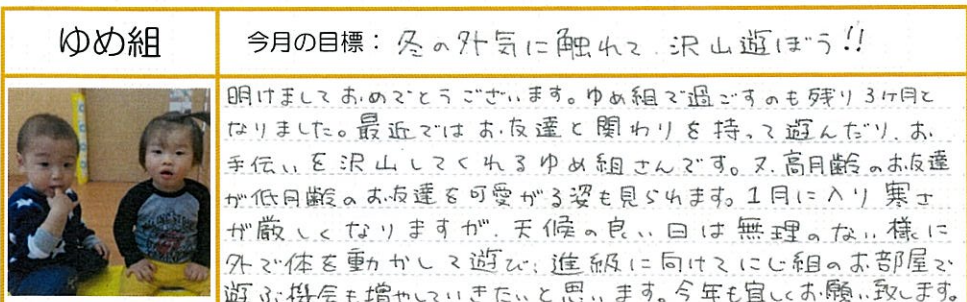 ゆめ組
今月の目標：冬の外気に触れて、沢山遊ぼう!!
明けましておめでとうございます。ゆめ組で過ごすのも残り3ヶ月と
なりました。最近ではお友達と関わりを持って遊んだり、お
手伝いを沢山してくれるゆめ組さんです。又、高月齢のお友達
が低月齢のお友達を可愛がる姿も見られます。1月に入り寒さ
が厳しくなりますが、天候の良い日は無理のない様に
外で体を動かして遊び、進級に向けてにじ組のお部屋で
遊ぶ機会も増やしていきたいと思います。今年も宜しくお願い致します。